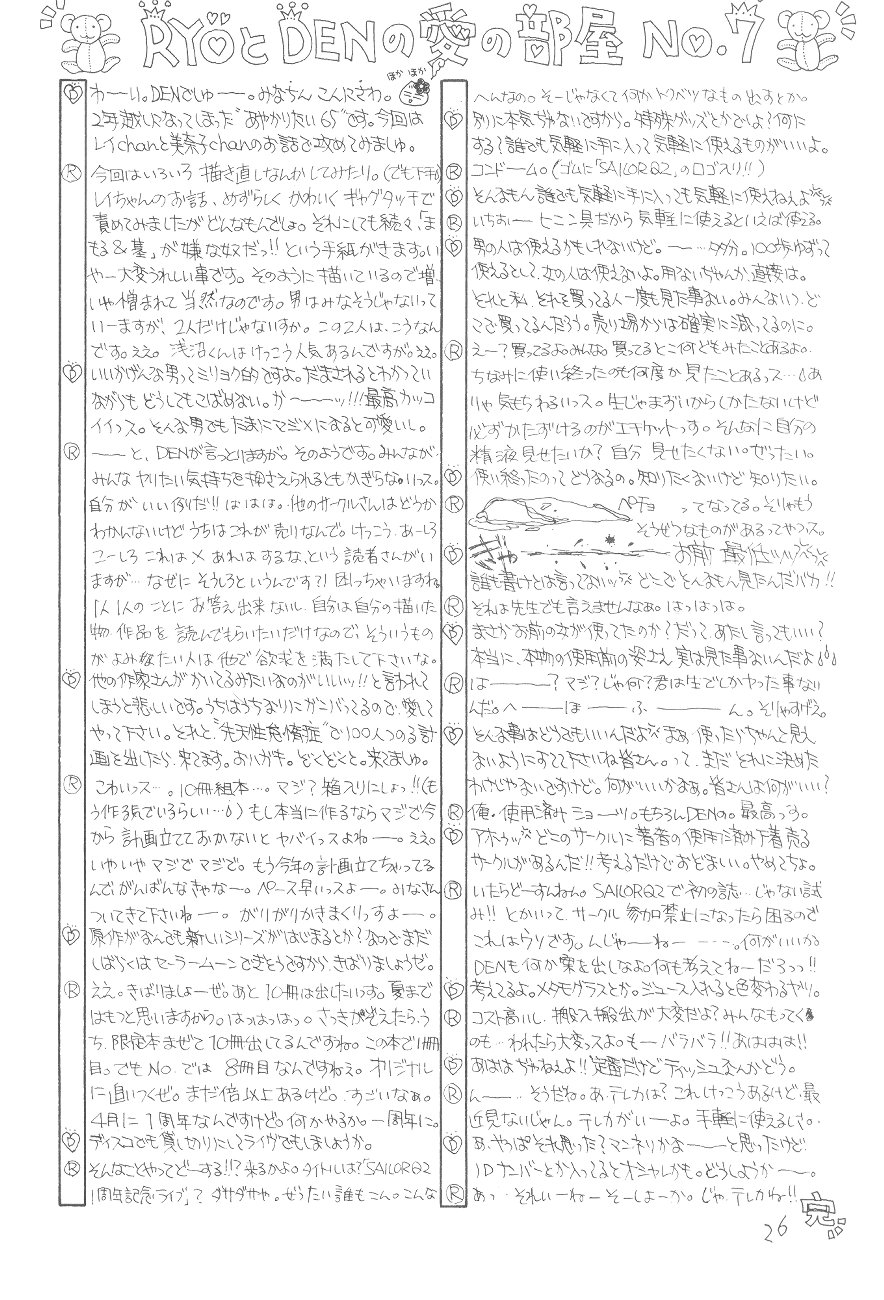 RYOとDENの愛の部屋 No.7
ほか ほか
D わーい。DENでしゅー。みなちん こんにさわ。
2年越しになってしまった"あやかりたい65"です。今回は
レイchanと美奈子chanのお話で攻めてみましゅ。
R 今回はいろいろ 描き直しなんかしてみたり。(でも下手)
レイちゃんのお話、めずらしく かわいく ギャグタッチで
責めてみましたがどんなもんでしょ。それにしても続々、「ま
もる&基」が嫌な奴だっ!! という手紙がきます。い
やー大変うれしい事です。そのように描いているので増、
いや憎まれて当然なのです。男はみなそうじゃないって
いーますが、2人だけじゃないすか。この2人は、こうなん
です。ええ。浅沼くんはけっこう人気あるんですが。ええ。
D いいかげんな男ってミリョク的ですよ。だまされるとわかってい
ながらも どうしてもこばめない。かーーーッ!!!最高カッコ
イイっス。そんな男でもたまにマジメになると可愛いし。
R ーーと、DENが言っとりますが。そのようです。みんなが、
みんな ヤリたい気持ちを押さえられるともかぎらな。いっス。
自分がいい例りだ!! ははは。他のサークルさんはどうか
わかんないけど うちはこれが売りなんで。けっこう、あーしろ
こーしろ これは× あれは するな、という 読者さんがい
ますが… なぜに そうしろというんです?! 困っちゃいますね。
1人1人のことに お答え出来ないし、自分は自分の描いた
物、作品を 読んでもらいたいだけなので、そういうもの
がよみたい人は他で欲求を満たして下さいな。
D 他の作家さんがかいてるみたいなのがいいッ!! と言われて
しまうと悲しいです。うちはうちなりにガンバってるので、愛して
やって下さい。それと"先天性怠惰症"で100人つのる計
画を出したら、来てます。おハガキ。どくどくと。来てましゅ。
R こわいっス…。10冊組本…。マジ? 箱入りにしょっ!!(も
う作る気でいるらしい…) もし本当に作るならマジで今
から 計画立てておかないと ヤバイっスよねーー。ええ。
いやいや マジで マジで。もう今年の計画立てちゃってる
んで がんばんなきゃなー。ペース早いっスよー。みなさん
ついてきて下さいねー。がりがりかきまくりっすよー。
D 原作がなんでも新しいシリーズがはじまるとか? なのでまだ
しばらくはセーラームーンできそうですから、きばりましょうぜ。
R ええ。きばりましょーぜ。あと 10冊は出したいっす。夏まで
はもつと思いますから。はっはっはっ。さっきかぞえたら、う
ち、限定本まぜて 10冊出してるんですね。この本で11冊
目。でもNo.では 8冊目なんですねえ。オリジナル
に追いつくぜ。まだ倍以上あるけど。すごいなぁ。
4月に 1周年なんですけど。何かやるか。一周年に。
D ディスコでも貸し切りにしてライヴでもしましょうか。
R そんなことやってどーする!!? 来るかよ。タイトルは?「SAILORQ2
1周年記念ライブ」? ダサダサや。ぜったい誰もこん。こんな
へんなの。そーじゃなくて何かトクベツなもの出すとか。
D 別に本気ぢゃないですから。特殊グッズとかでしょ? 何に
する? 誰でも気軽に手に入って気軽に使えるものがいいよ。
R コンドーム。(ゴムに「SAILORQ2」のロゴスリ!!)
D そんなもん誰でも気軽に手に入っても気軽に使えねぇよ
R いちおー 七ニン具だから気軽に使えるといえば使える。
D 男の人は使えるかもしれないけど。ー…多分。100歩ゆずって
使えるとして、女の人は使えないよ。用ないぢゃんか、直接は。
それと私 それを買ってる人一度も見た事ない。みんないつ、ど
こで買ってるんだろう。売り場からは確実に減ってるのに。
R えー? 買ってるよ。みんな。買ってるとこ何どもみたことあるよ。
ちなみに使い終ったのも何度か 見たことあるっス…あ
りゃ 気もちわるいっス。生じゃまずいからしかたないけど
必ずかたずけるのがエチケットっす。そんなに自分の
精液見せたいか? 自分 見せたくない。ぜったい。
D 使い終ったのってどうなるの。知りたくないけど知りたい。
R ペチョ ってなってる。そりゃもう
そうぜつなものがあるってやつっス。
D ぎゃ お前 最低ッッ
誰も書けとは言ってないッ どこで そんなもん見たんだバカ!!
R それは先生でも言えませんなぁ。はっはっは。
D まさかお前の女が使ってたのか? だって、あたし言ってもいい?
本当に、本物の使用前の姿さえ、実は見た事ないんだよ
R はーーー? マジ? じゃ何? 君は生でしかヤった事ない
んだ。へーーほーーふーーん。そりゃすげえ。
D そんな事はどうでもいいんだよ まぁ、使ったらちゃんと見え
ないようにすてて下さいね皆さん。って、まだ それに決めた
わけじゃないですけど。何がいいかなぁ。皆さんは何がいい?
R 俺・使用済み ショーツ。もちろんDENの。最高っす。
D アホゥッ どこのサークルに著者の使用済み下着売る
サークルがあるんだ!! 考えるだけでおどましい。やめてちょ。
R いたらどーすんねん。SAILORQ2で初の試…じゃない試
み!! とかいって サークル 参加禁止になったら困るので
これはウソです。んじゃーねー ----。何がいいかな
DENも何か案を出しなよ。何も考えてねーだろっっ!!
D 考えてるよ。メタモグラスとか。ジュース入れると色変わるヤツ。
R コスト高いし、搬入搬出が大変だよ? みんなもってくの
も…われたら大変っスよ。もーバラバラ!! あははは!!
D あははぢゃねえよ!! 定番だけどティッシュなんかどう。
R んーー そうだね。あ、テレカは? これけっこうあるけど、最
近見ないじゃん。テレカがいーよ。手軽に使えるしさ。
D あ、やっぱそれ思った? マンネリかなーーと思ったけど
IDナンバーとか入ってるとオシャレかも。どうしようかーー。
R あっ…それいーねー そーしよーか。じゃ、テレカね!!
完
26